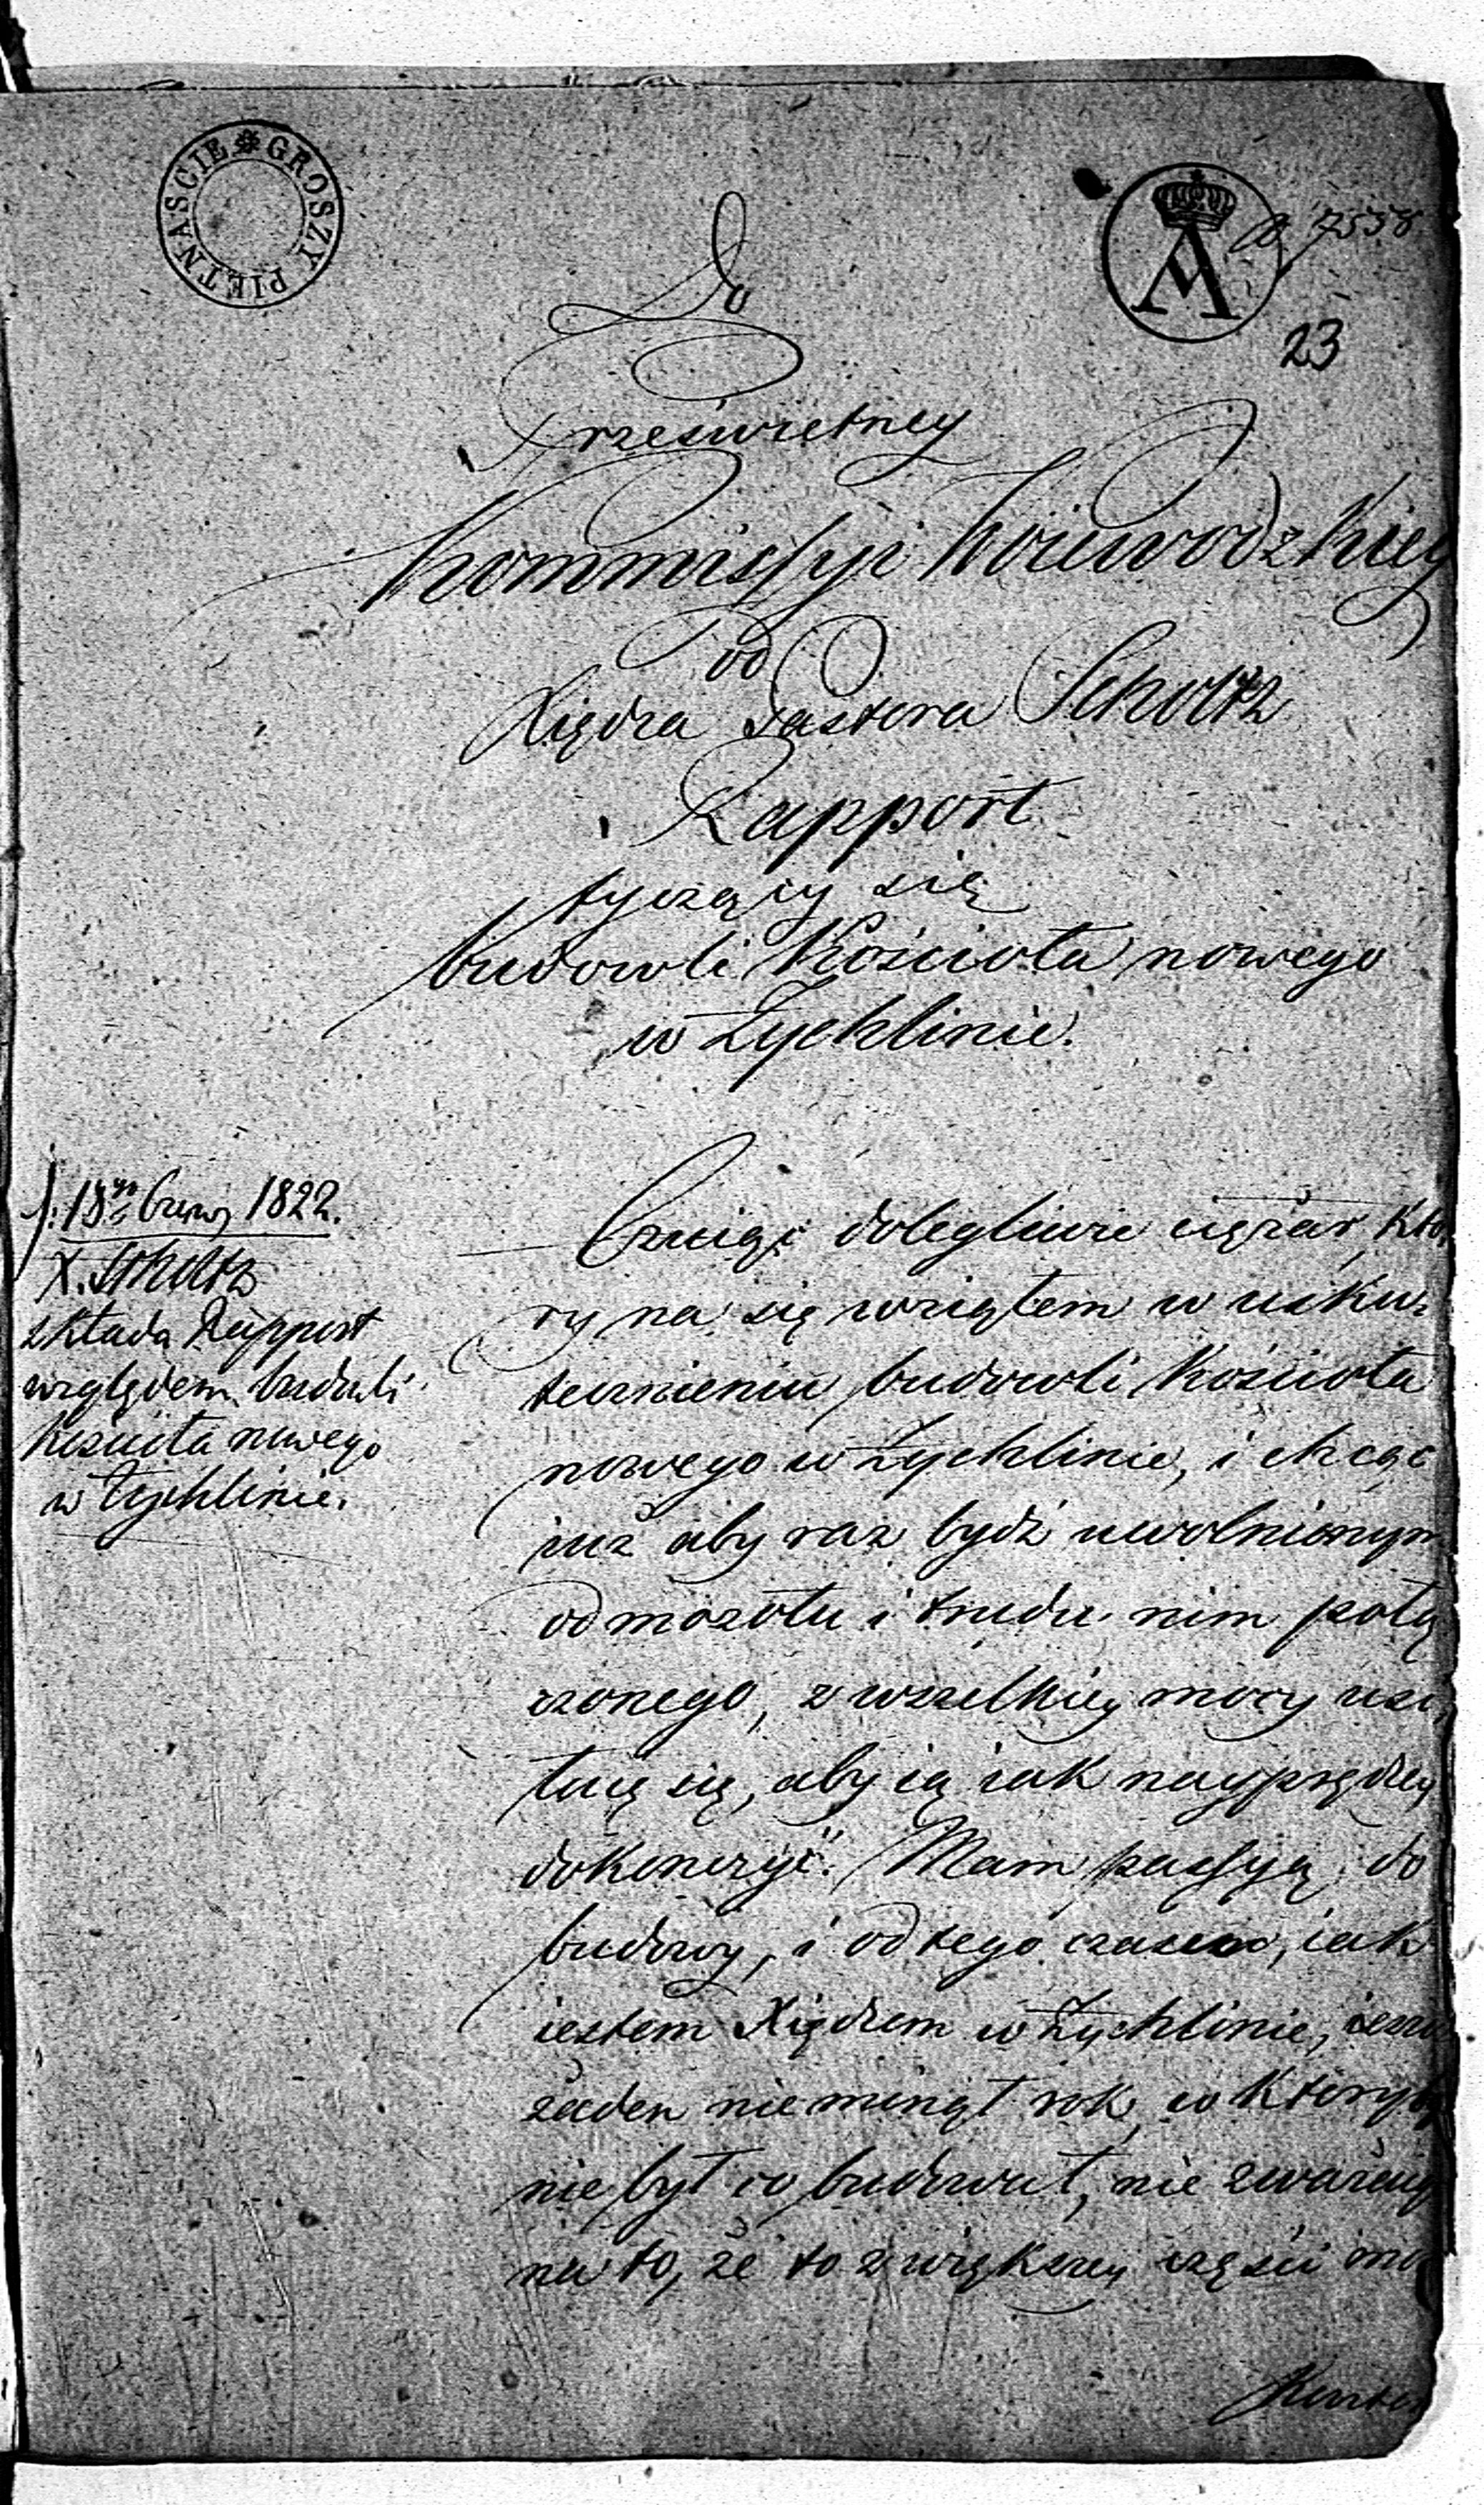 GROSZY PIĘTNAŚCIE
A
7558
23
Do
Prześwietney
Kommissyi Woiewodzkiey
od
Xiędza Pastora Scholtz
Rapport
tyczący się
budowli Kościoła nowego
w Żychlinie.
1822.
X. Scholtz
składa Rapport
względem budowli
Kościoła nowego
w Żychlinie.
Czuiąc dolegliwie ciężar, któ,
ry na się wziąłem w usku,
tecznieniu budowli Kościoła
nowego w Żychlinie, i chcąc
iuż aby raz bydź uwolnionym
od mozołu i trudu nim połą
czonego, z wszelkiey mocy usi,
łuię się, aby ią iak nayprędzey
dokonczyć. Mam passyą do
budowy, i od tego czasu, iak
iestem Xiędzem w Żychlinie, ieszcze
żaden nie minął rok, w którym
nie był co budował, nie zważaiąc
na to, że to z większey części mo